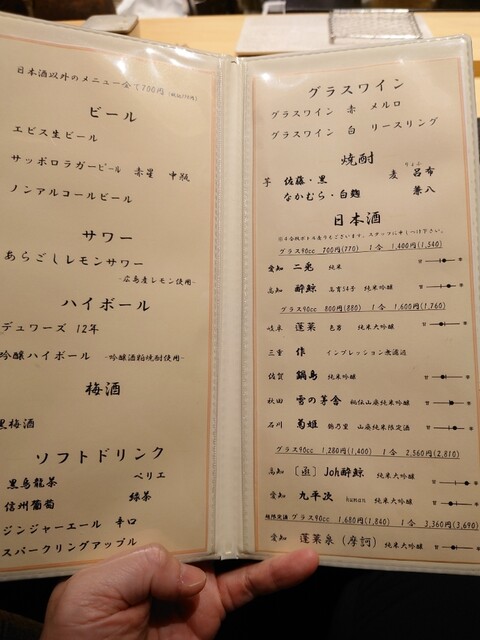 日本酒以外のメニュー全て700円(税込770円)
ビール
エビス生ビール
サッポロラガービール 赤星 中瓶
ノンアルコールビール
サワー
あらごしレモンサワー
-広島産レモン使用-
ハイボール
デュワーズ 12年
吟醸ハイボール -吟醸酒粕焼酎使用-
梅酒
黒梅酒
ソフトドリンク
黒烏龍茶 ペリエ
信州葡萄 緑茶
ジンジャーエール 辛口
スパークリングアップル
グラスワイン
グラスワイン 赤 メルロ
グラスワイン 白 リースリング
焼酎
芋 佐藤・黒 麦 呂布
なかむら・白麹 兼八
日本酒
グラス90cc 700円(770) 1合 1,400円(1,540)
愛知 二兎 純米 甘 辛
高知 酔鯨 高育54号 純米吟醸 甘 辛
グラス90cc 800円(880) 1合 1,600円(1,760)
岐阜 蓬莱 色男 純米大吟醸 甘 辛
三重 作 インプレッション無濾過
佐賀 鍋島 純米吟醸 甘 辛
秋田 雪の茅舎 秘伝山廃純米吟醸 甘 辛
石川 菊姫 鶴乃里 山廃純米限定酒 甘 辛
グラス90cc 1,280円(1,400) 1合 2,560円(2,810)
高知 Joh酔鯨 純米大吟醸 甘 辛
愛知 九平次 human 純米大吟醸 甘 辛
極限定酒 グラス90cc 1,680円(1,840) 1合 3,360円(3,690)
愛知 蓬莱泉(摩訶) 純米大吟醸 甘 辛